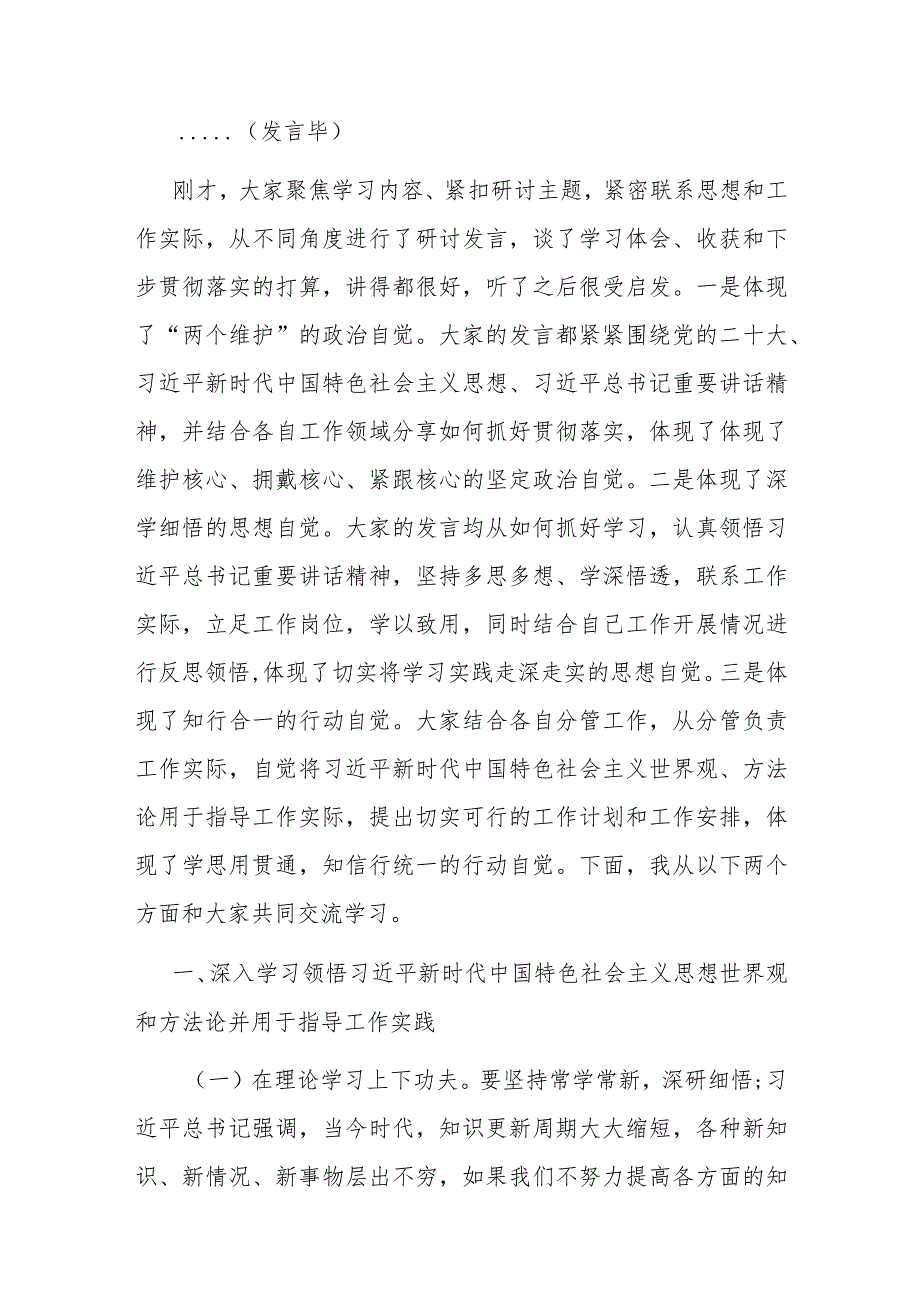 .....（发言毕）
刚才，大家聚焦学习内容、紧扣研讨主题，紧密联系思想和工
作实际，从不同角度进行了研讨发言，谈了学习体会、收获和下
步贯彻落实的打算，讲得都很好，听了之后很受启发。一是体现
了“两个维护”的政治自觉。大家的发言都紧紧围绕党的二十大、
习近平新时代中国特色社会主义思想、习近平总书记重要讲话精
神，并结合各自工作领域分享如何抓好贯彻落实，体现了体现了
维护核心、拥戴核心、紧跟核心的坚定政治自觉。二是体现了深
学细悟的思想自觉。大家的发言均从如何抓好学习，认真领悟习
近平总书记重要讲话精神，坚持多思多想、学深悟透，联系工作
实际，立足工作岗位，学以致用，同时结合自己工作开展情况进
行反思领悟,体现了切实将学习实践走深走实的思想自觉。三是体
现了知行合一的行动自觉。大家结合各自分管工作，从分管负责
工作实际，自觉将习近平新时代中国特色社会主义世界观、方法
论用于指导工作实际，提出切实可行的工作计划和工作安排，体
现了学思用贯通，知信行统一的行动自觉。下面，我从以下两个
方面和大家共同交流学习。
一、深入学习领悟习近平新时代中国特色社会主义思想世界观
和方法论并用于指导工作实践
（一）在理论学习上下功夫。要坚持常学常新，深研细悟;习
近平总书记强调，当今时代，知识更新周期大大缩短，各种新知
识、新情况、新事物层出不穷，如果我们不努力提高各方面的知